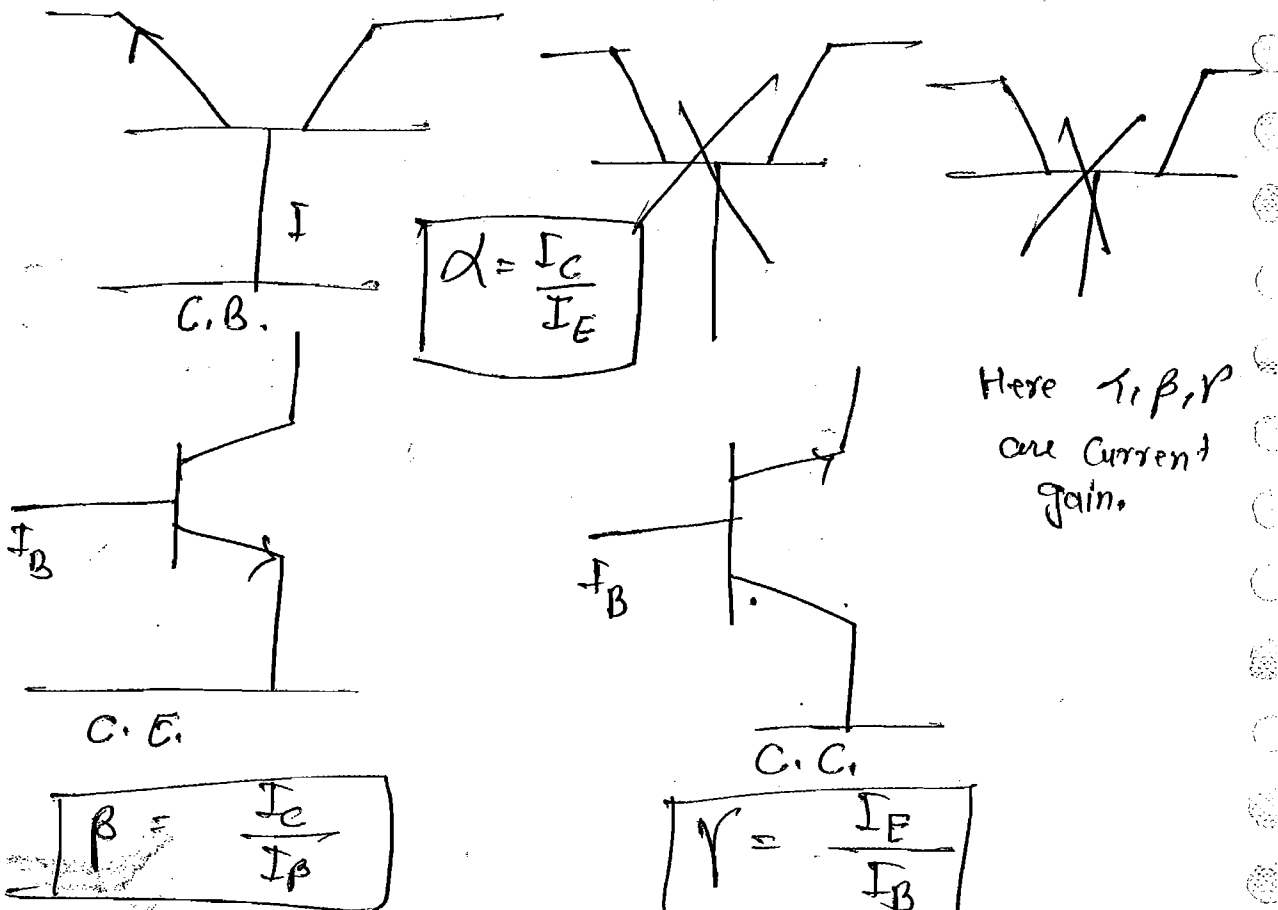 I
C.B.
α = I_C / I_E
Here α, β, γ
are current
gain.
I_B
I_B
C.E.
C.C.
β = I_C / I_β
γ = I_E / I_B